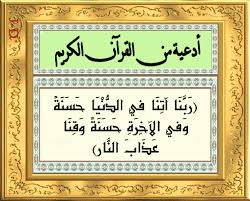 أدعية من القرآن الكريم
(رَبَّنَا آتِنَا فِي الدُّنْيَا حَسَنَةً
وَفِي الآخِرَةِ حَسَنَةً وَقِنَا
عَذَابَ النَّارِ)